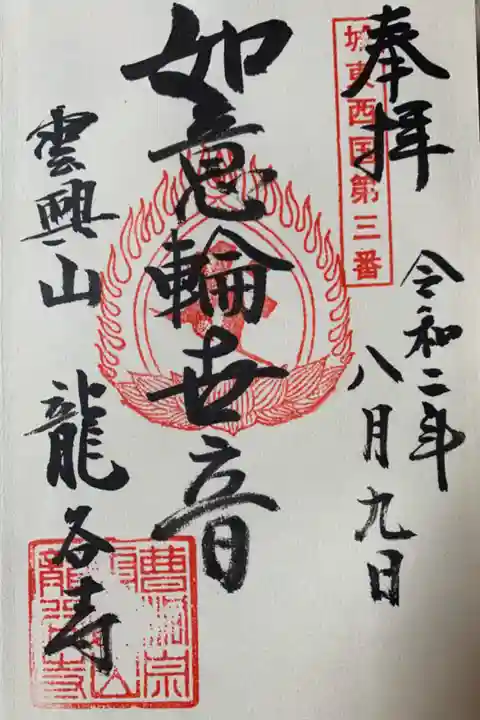 奉拝
城東西国第三番
令和二年
八月九日
如意輪世音
雲興山 龍谷寺
曹洞宗